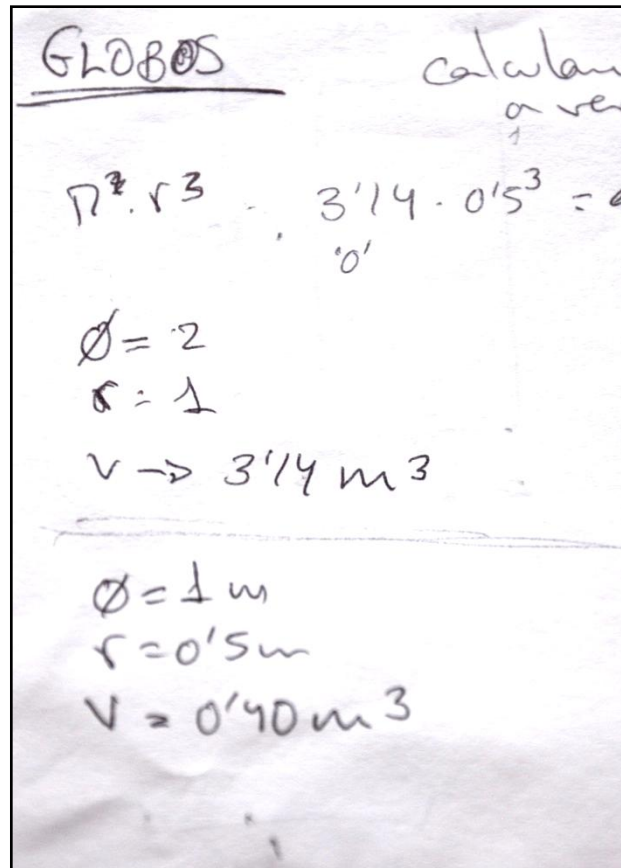 GLOBOS
calculan
a ve
π². r³ 3'14 · 0'5³ =
'0'
Ø = 2
r = 1
V -> 3'14 m³
Ø = 1 m
r = 0'5 m
V = 0'40 m³